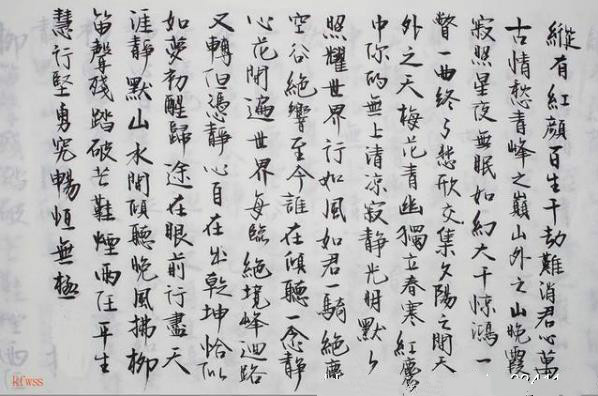 縱有紅顏百生千劫難消君心萬
古情愁青峰之巔山外之山晚霞
寂照星夜無眠如幻大千惊鴻一
瞥一曲終了悲欣交集夕陽之間天
外之天梅花青幽獨立春寒紅塵
中你的無上清凉寂靜光明默默
照耀世界行如風如君一騎絕塵
空谷絕響至今誰在傾聽一念靜
心花開遍世界每臨絕境峰迴路
又轉但憑靜心自在出乾坤恰似
如夢初醒歸途在眼前行盡天
涯靜默山水間傾聽晚風拂柳
笛聲殘踏破芒鞋煙雨任平生
慧行堅勇究暢恒無極
kfwss